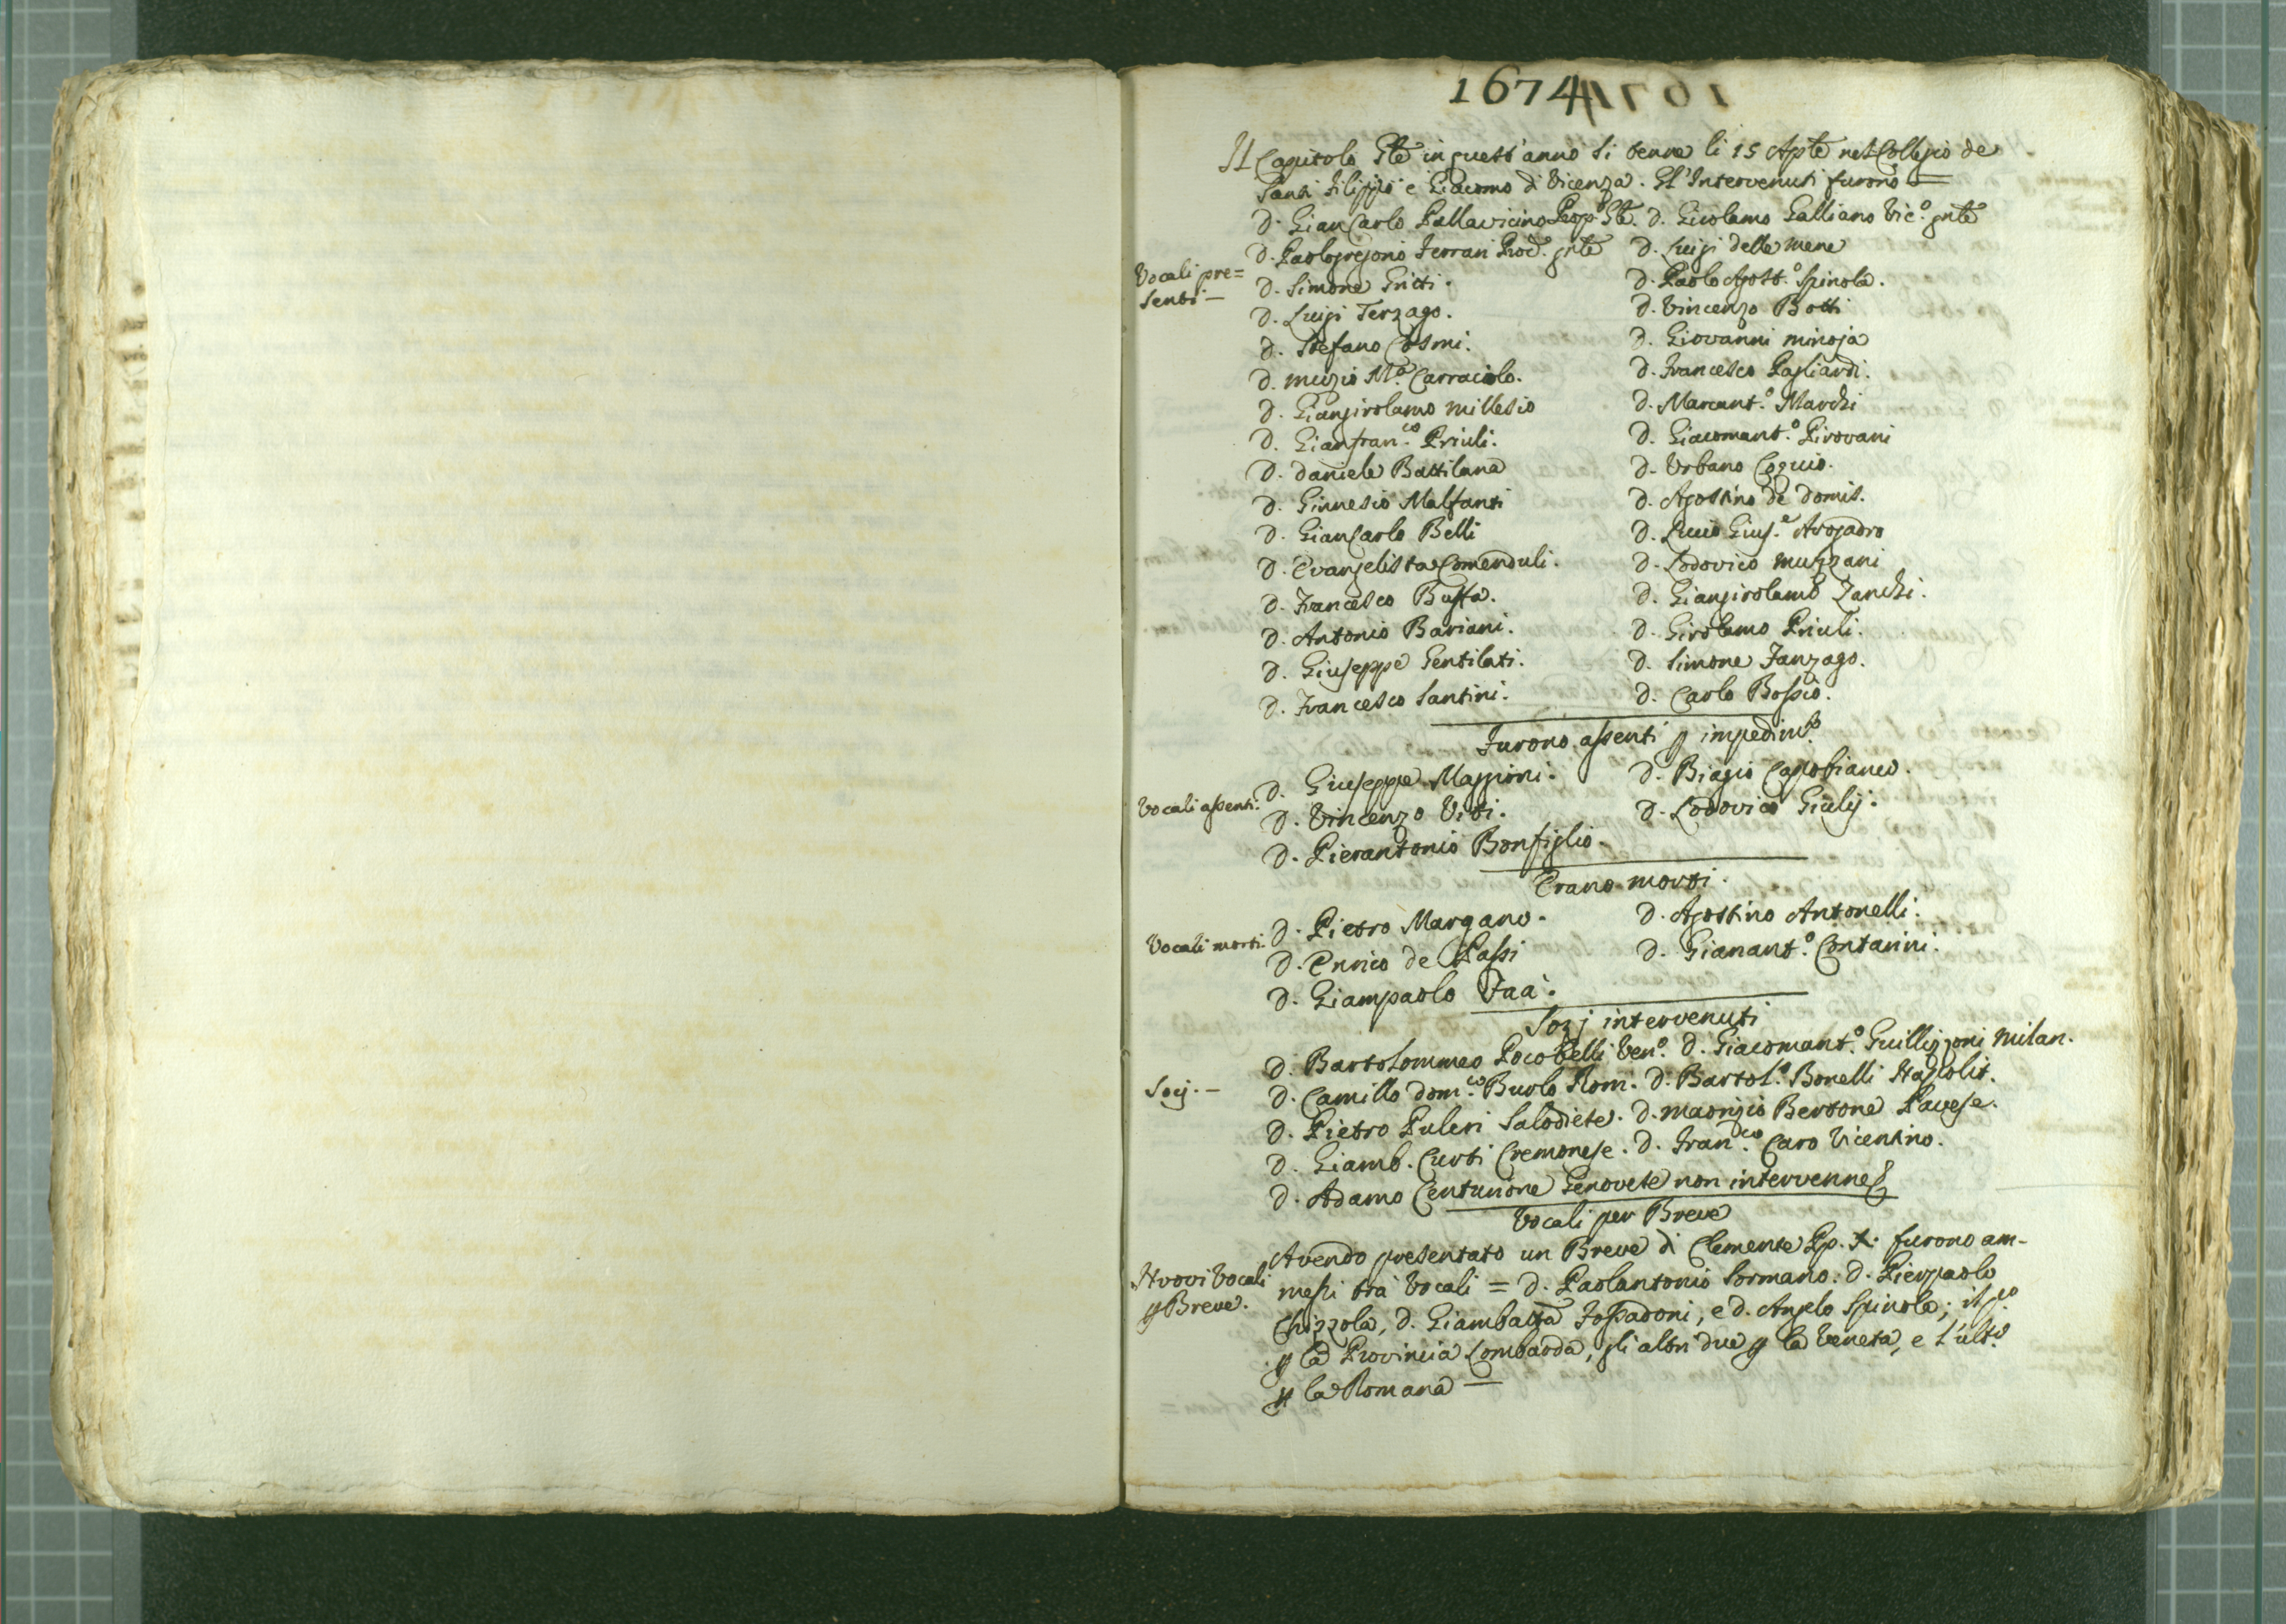 1674
Il Capitolo Gle in quest'anno si tenne li 15 Aple nel Collegio de
Santi Filippo e Giacomo di Vicenza. Gl'Intervenuti furono
D. GianCarlo Pallavicino Prep.º Gle. D. Girolamo Galliano Vic.º gnle
Vocali pre=
senti —
D. Paologregorio Ferrari Proc. gnle D. Luigi delle mene
D. Simone Gritti. D. Paolo Agost.º Spinola.
D. Luigi Terzago. D. Vincenzo Botti
D. Stefano Cosmi. D. Giovanni minoja
D. muzio M.ª Carraciolo. D. Francesco Pagliardi.
D. Giangirolamo millesio D. Marcant.º Marchi
D. Gianfran.co Priuli. D. Giacomant.º Pirovani
D. daniele Battilana D. Urbano Cogcio.
D. Ginnesio Malfanti D. Agostino de domis.
D. GianCarlo Belli D. Lucio Gius.e Avogadro
D. Evangelista Comenduli. D. Lodovico muzzani
D. Francesco Buffa. D. Giangirolamo Zanchi.
D. Antonio Bariani. D. Girolamo Priuli.
D. Giuseppe Gentilati. D. Simone Fanzago.
D. Francesco Santini. D. Carlo Bossio.
Furono assenti p impedim.to
Vocali assenti.
D. Giuseppe Maggioni. D. Biagio Capobianco.
D. Vincenzo Viti. D. Lodovico Giulij.
D. Pierantonio Bonfiglio.
Erano morti.
Vocali morti.
D. Pietro Margano. D. Agostino Antonelli.
D. Enrico de Passi D. Gianant.º Contarini.
D. Giampaolo Faà.
Sozj intervenuti
D. Bartolommeo Pocobelli Ven.º D. Giacomant.º Guillizzoni Milan.
Socij. —
D. Camillo dom.co Buolo Rom. D. Bartol.º Bonelli Napolit.
D. Pietro Puleri Salodiese. D. maorizio Bertone Pavese.
D. Giamb. Curti Cremonese. D. Fran.co Caro Vicentino.
D. Adamo Centurione Genovese non intervenne
Vocali per Breve
Nuovi Vocali
p Breve.
Avendo presentato un Breve di Clemente Pp. X. furono am-
messi trà Vocali = D. Paolantonio Sormano. D. Pierpaolo
Chizzola, D. Giambatta Fossadoni, e D. Angelo Spinola; il p.º
p la Provincia Lombarda, gli altri due p la Veneta, e l'ult.º
p la Romana —